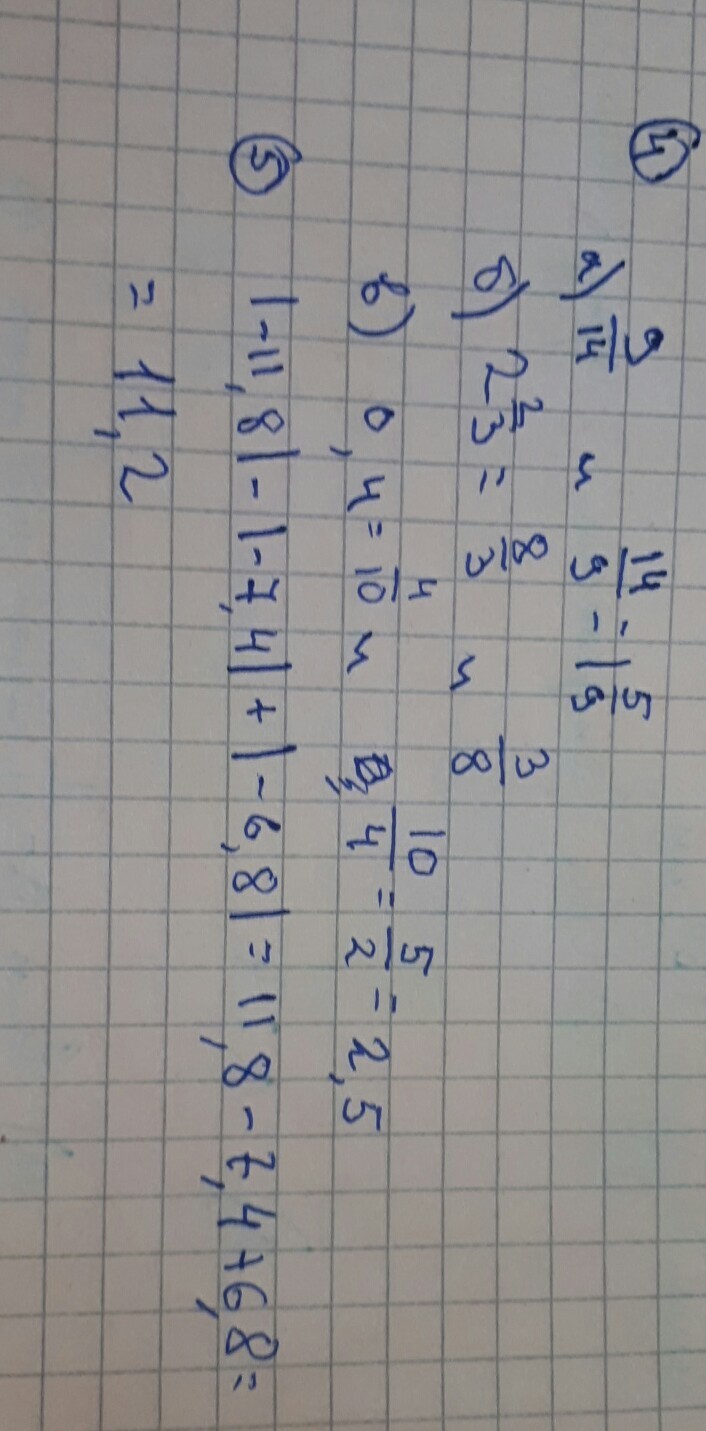 ④ а) 9/14 и 14/9 = 1 5/9
б) 2 2/3 = 8/3 и 3/8
в) 0,4 = 4/10 и 10/4 = 5/2 = 2,5
⑤ |-11,8| - |-7,4| + |-6,8| = 11,8 - 7,4 + 6,8 =
= 11,2